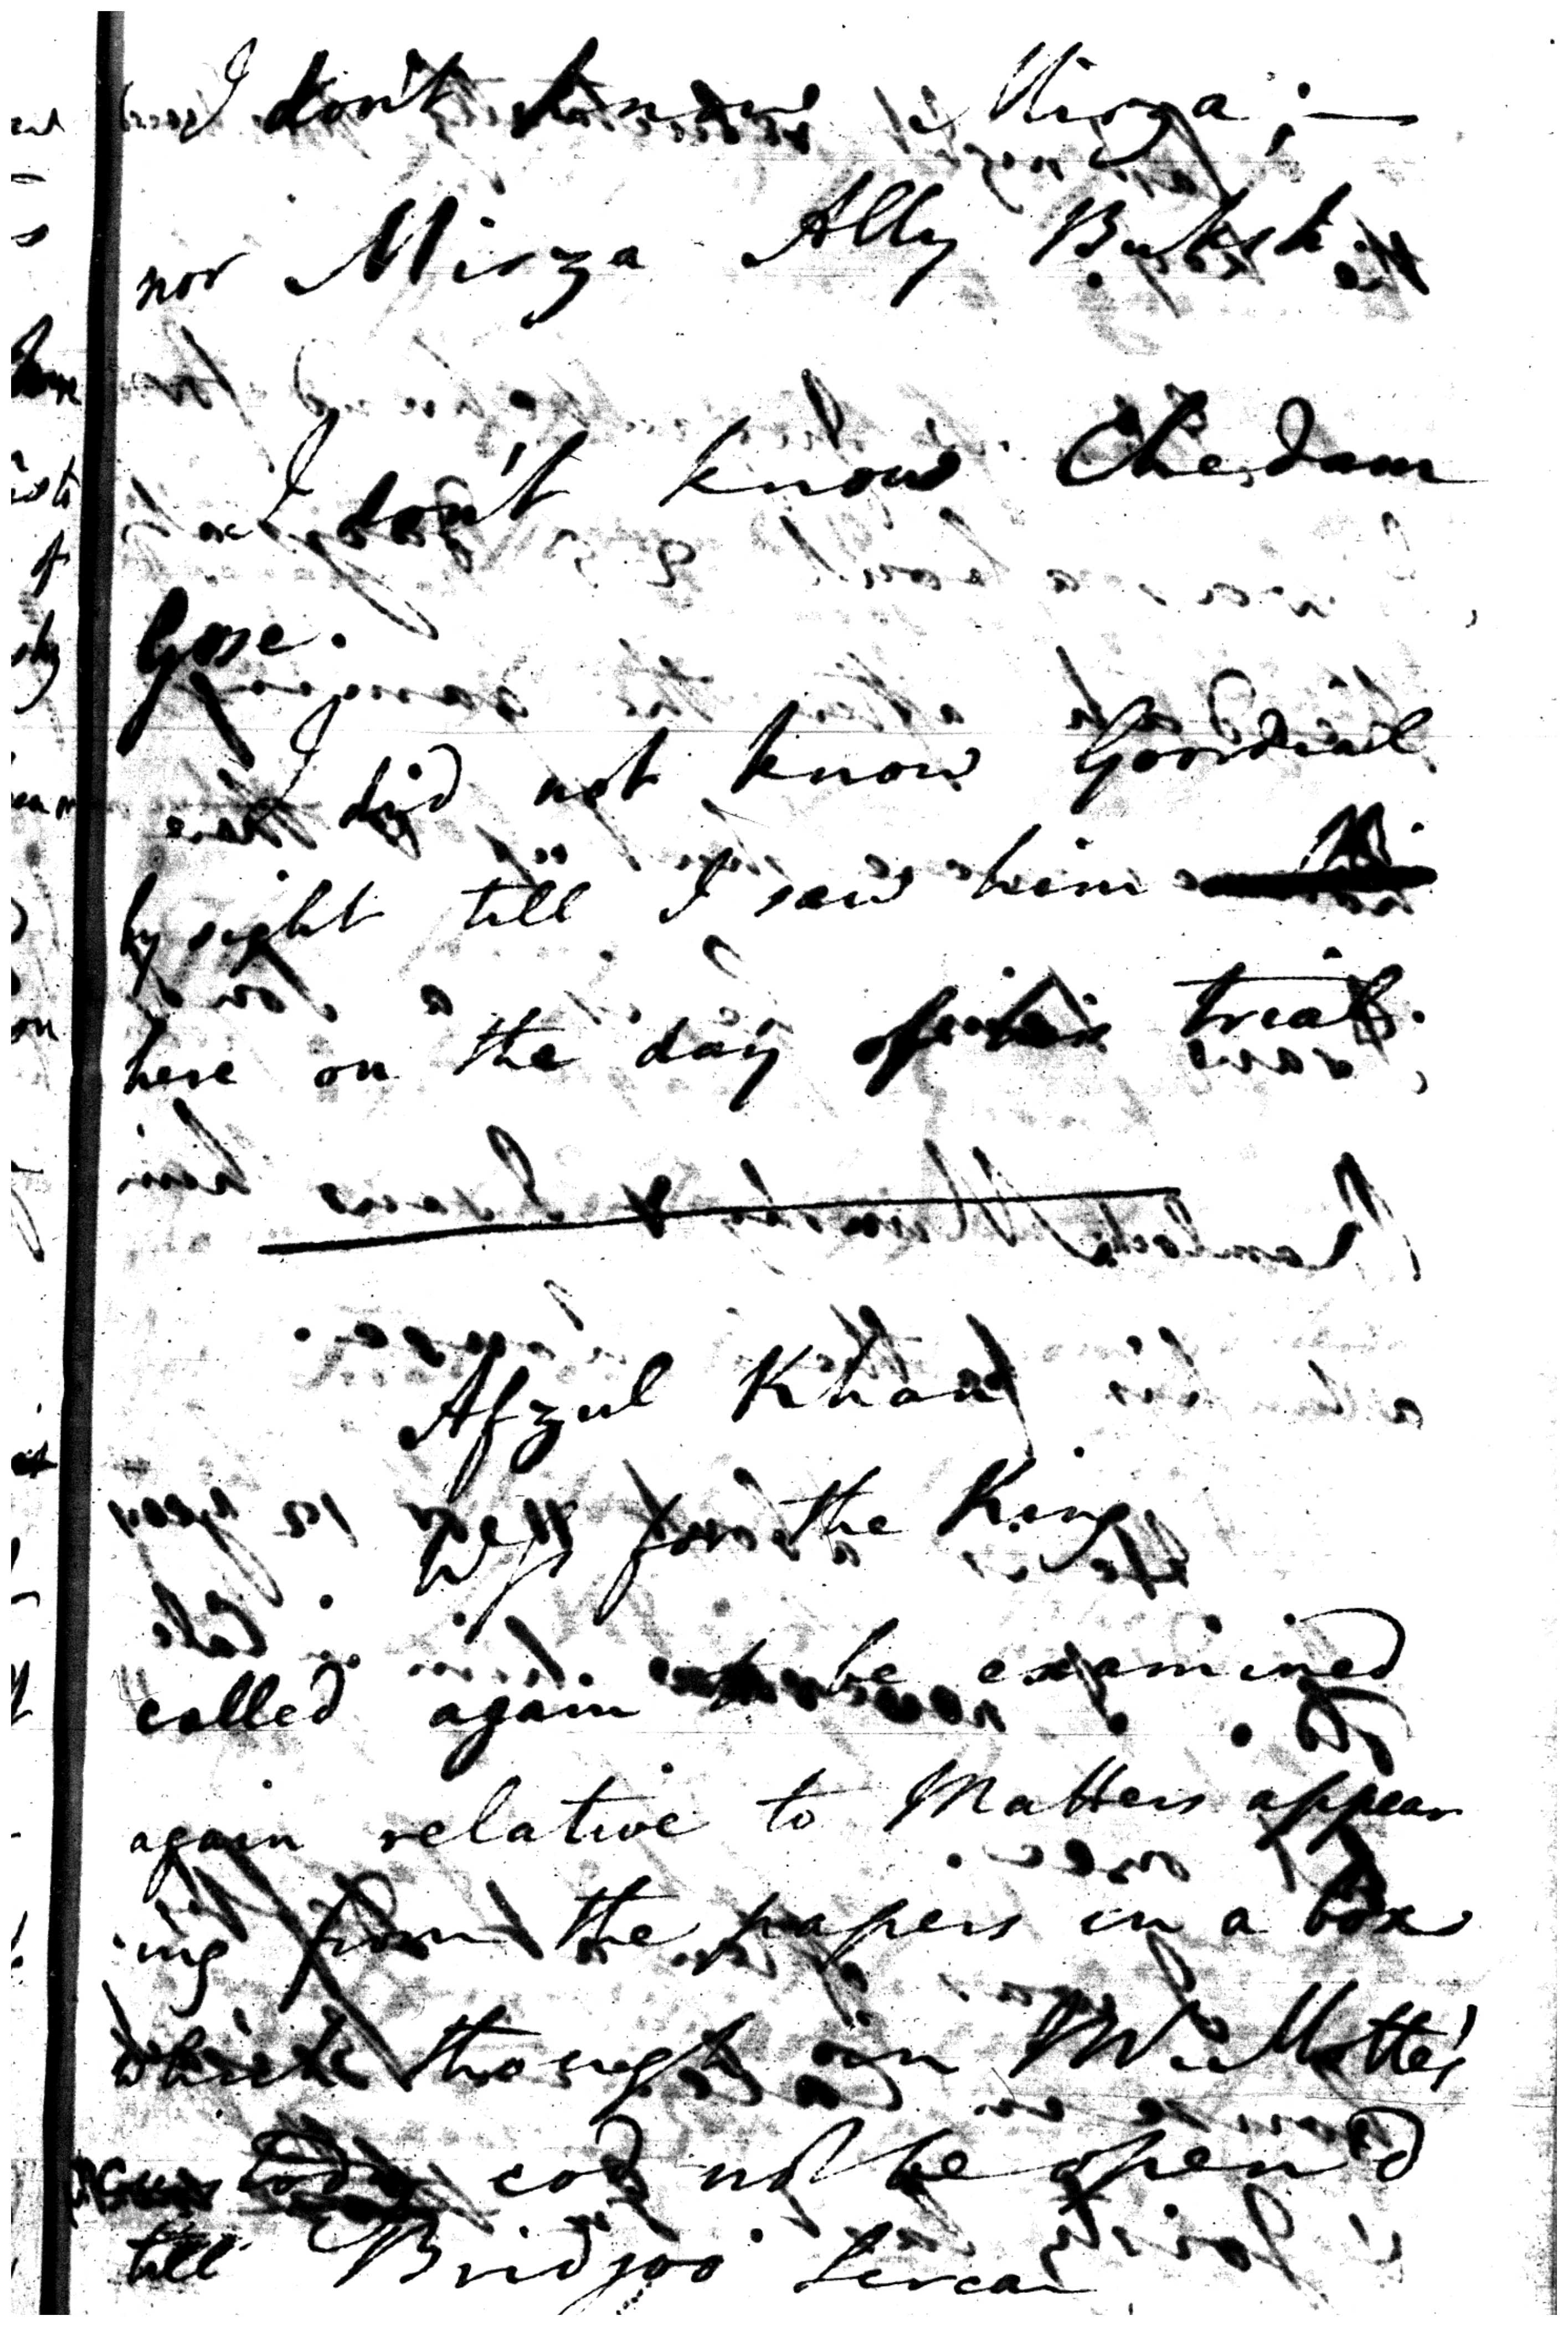 I don't know Mirza;—
nor Mirza Ally Buksh.
I don't know Chedam
Gose.
I did not know Gooridial
by sight till I saw him
here on the day of his trial.
Afzul Khan
Wss for the King
called again to be examined
again relative to Matters appear
ing from the papers in a box
which though in Mr Motte's
Custody cod not be open'd
till Bridjoo Sircar